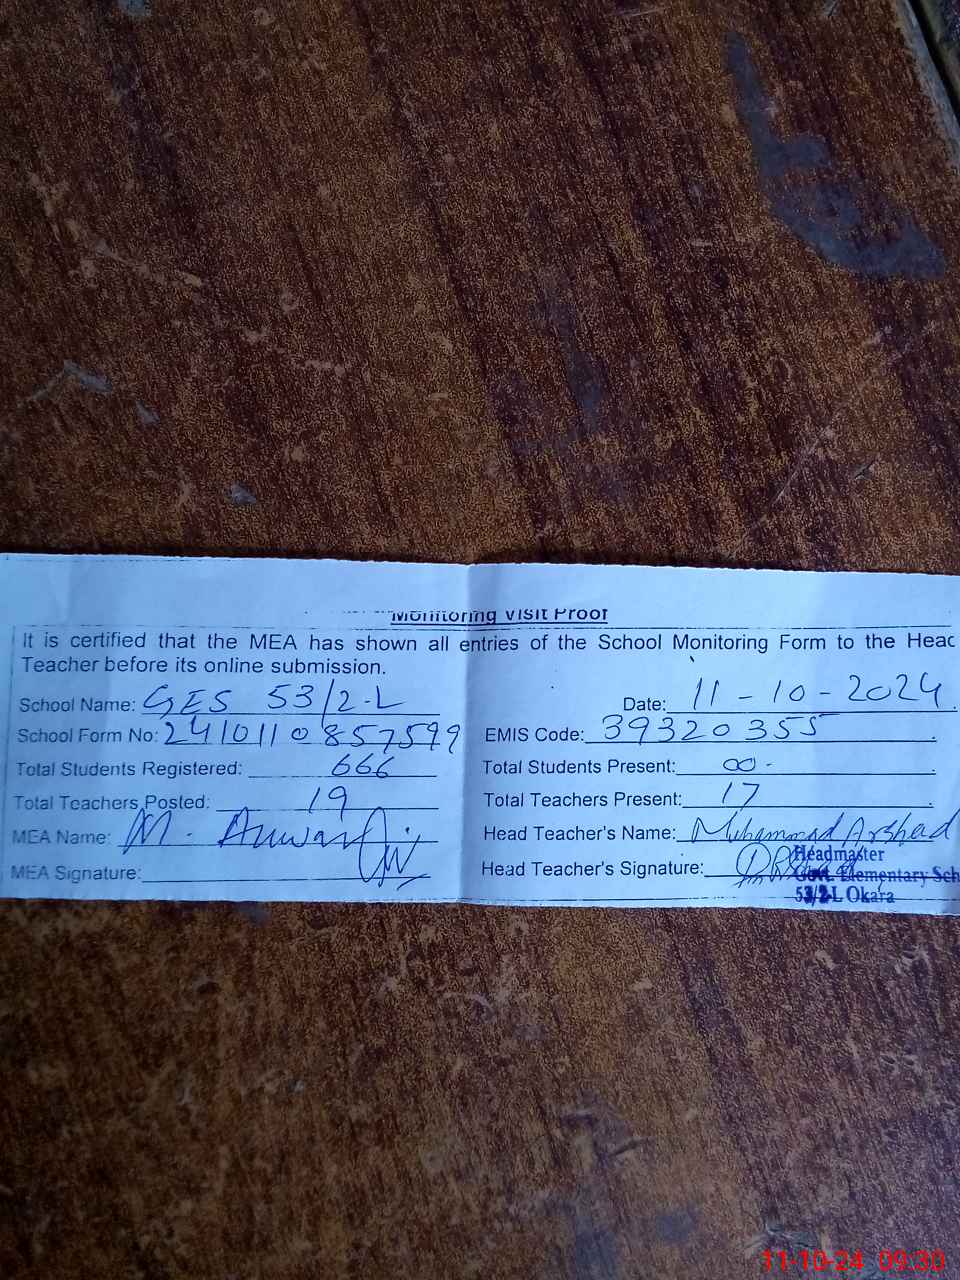 Monitoring Visit Proof
It is certified that the MEA has shown all entries of the School Monitoring Form to the Head
Teacher before its online submission.
School Name: GES 53/2-L Date: 11-10-2024
School Form No: 2410110857599 EMIS Code: 39320355
Total Students Registered: 666 Total Students Present: 00-
Total Teachers Posted: 19 Total Teachers Present: 17
MEA Name: M. Anwar Head Teacher's Name: Muhammad Arshad
MEA Signature: Head Teacher's Signature:
Headmaster
Govt. Elementary Sch
53/2-L Okara
11-10-24 09:30